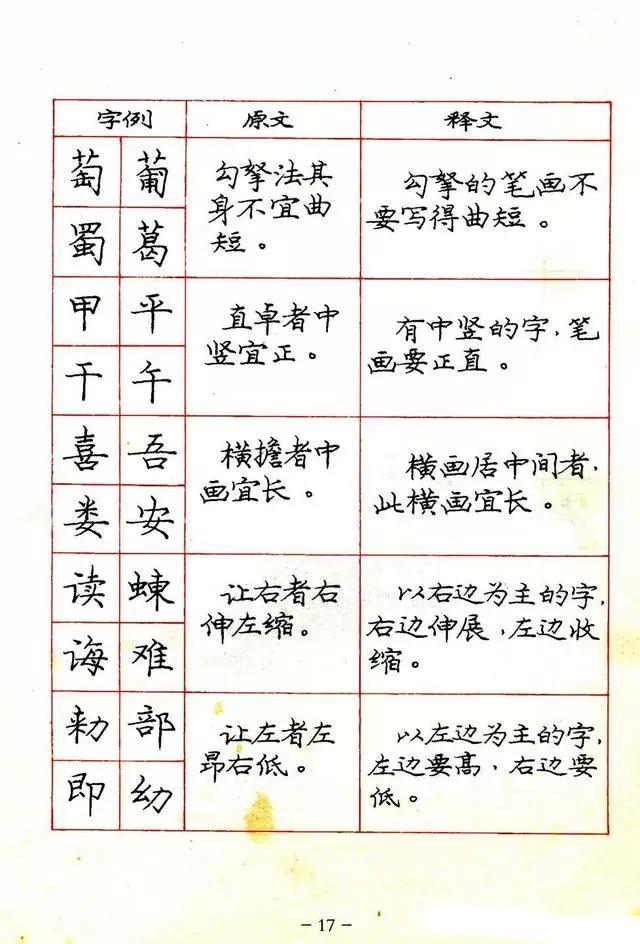 字例 原文 释文
萄 葡
蜀 葛
勾拏法其
身不宜曲
短。
勾拏的笔画不
要写得曲短。
甲 平
干 午
直卓者中
竖宜正。
有中竖的字,笔
画要正直。
喜 吾
娄 安
横担者中
画宜长。
横画居中间者,
此横画宜长。
读 蝀
诲 难
让右者右
伸左缩。
以右边为主的字,
右边伸展,左边收
缩。
勑 部
即 幼
让左者左
昂右低。
以左边为主的字,
左边要高,右边要
低。
- 17 -